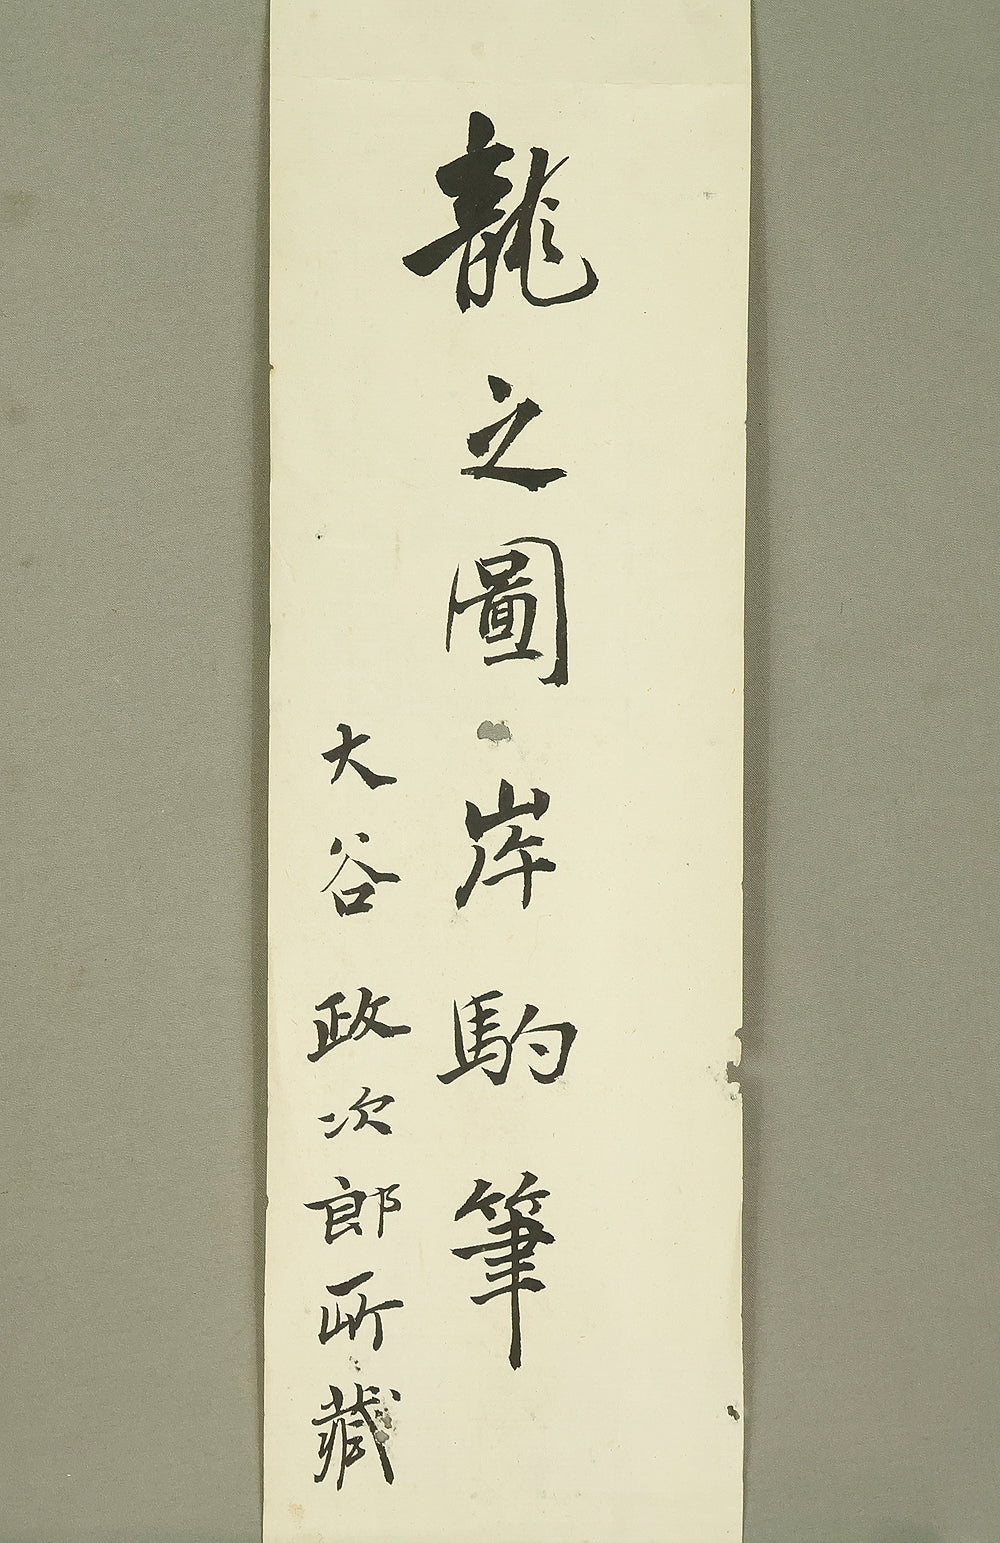 龍之圖 岸駒筆
大谷政次郎所藏